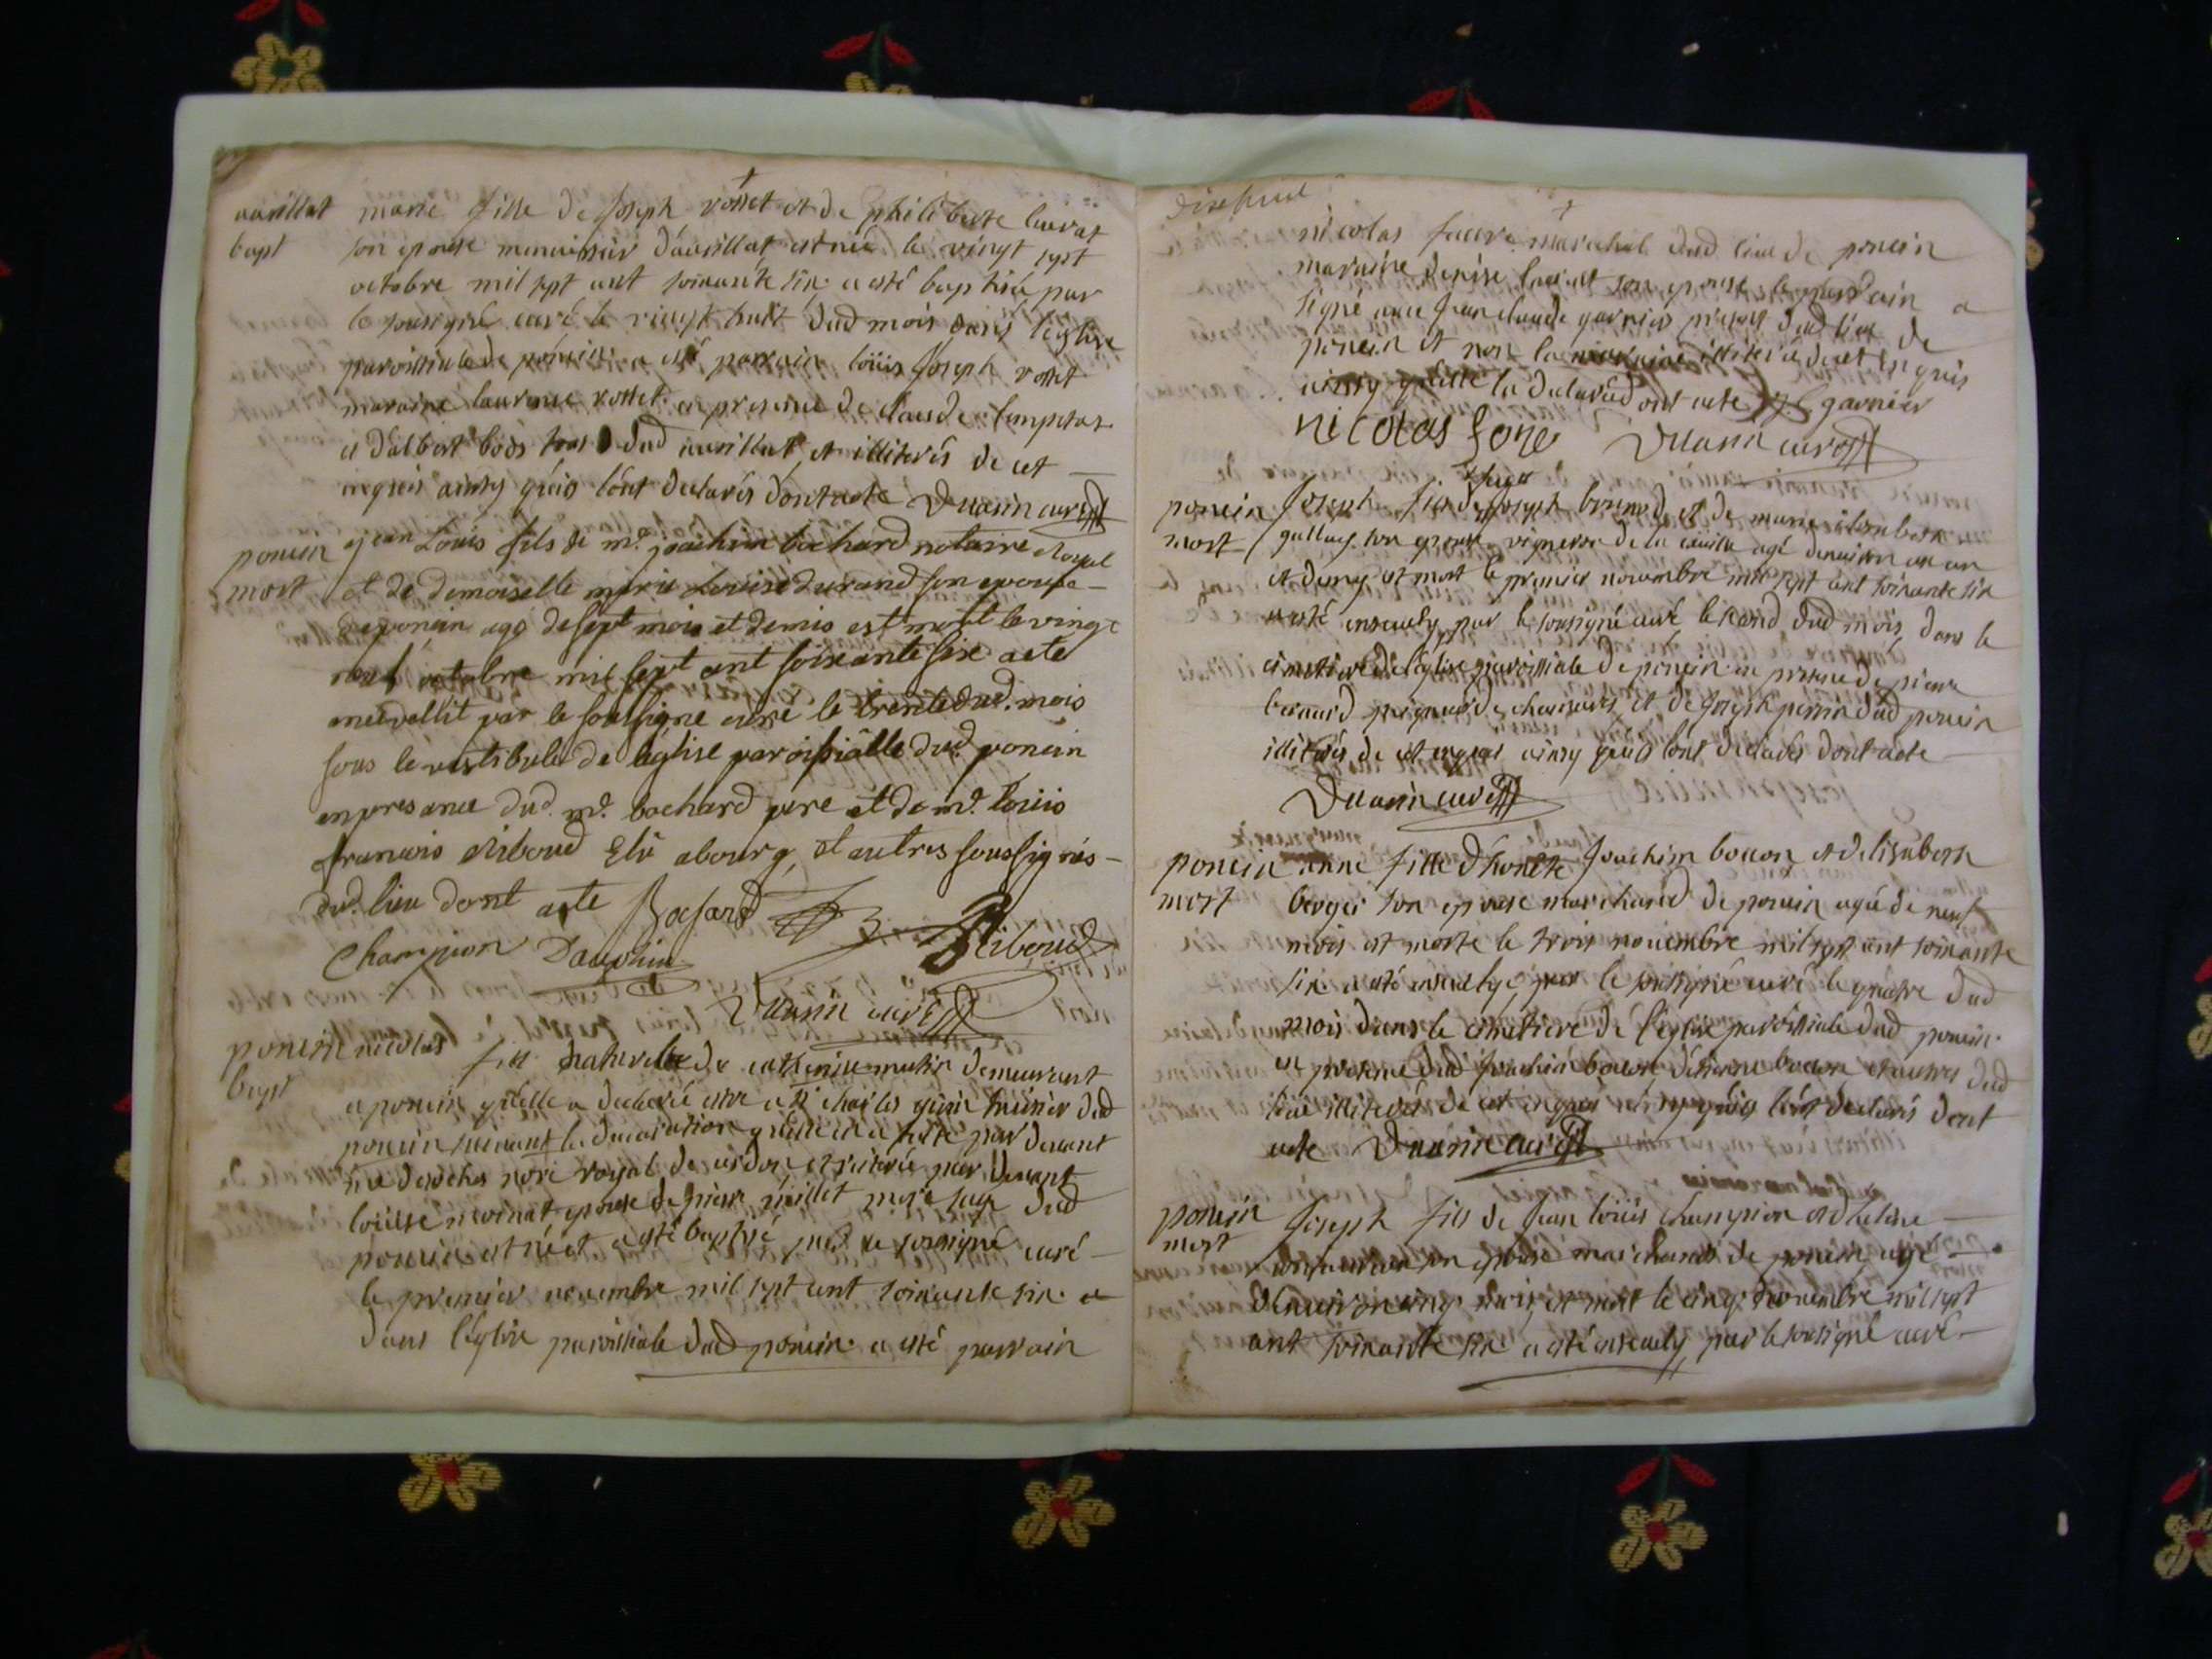 avrillat marie fille de joseph rosset et de philiberte lavrat
bapt son epouse menuisier d'avrillat est née le vingt sept
octobre mil sept cent soixante six a esté baptisé par
le soussigné curé le vingt huit dud mois dans l'eglise
paroissiale de poncin a esté parrain loüis joseph rosset
maraine laurence rosset en presence de claude
et d'albert bods tous dud avrillat et illiterés de cet
enquis ainsy qu'ils l'ont declarés dont acte Duarin curé
poncin jean Louis fils de mr. joachim bochard notaire Royal
mort et de demoiselle marie Louise durand son epouse
de poncin agé de sept mois et demis est mort le vingt
neuf octobre mil sept cent soixante six a ete
ensevellit par le soussigne curé le trente dud. mois
sous le vestibule de l'église paroissialle dud poncin
en presance dud. mr. bochard pere et de mr. loüis
francois Riboud Elü a bourg, et autres soussignés
dud. lieu dont acte Bochard Riboud
Champion Dauphin
Duarin curé
poncin nicolas fils naturel de catherine mutin demeurant
bapt a poncin qu'elle a declarée estre a sr charles dud
poncin suivant la declaration qu'elle en a faite par devant
me nore royal de cerdon et réiterée par devant
loüise epouse de pierre millet mere sage dud
poncin est né et a esté baptisé par le soussigné curé
le premier novembre mil sept cent soixante six
dans l'eglise paroissiale dud poncin a esté parrain
dixhuit
nicolas faure marechal dud lieu de poncin
maraine denise son epouse le parrain a
signé avec jean claude garnier dud lieu de
poncin et non la maraine illiterée de cet enquis
ainsy qu'elle la declaré dont acte J. C. garnier
nicolas fore Duarin curé
poncin joseph fils de joseph brunod et de marie
mort son epouse vigneron de la agé denviron un an
et demy est mort le premier novembre mil sept cent soixante six
a esté ensevely par le soussigné curé le second dud mois dans le
cimetiere de l'eglise paroissiale de poncin en presence de pierre
bernard et de joseph perrin dud poncin
illiterés de cet enquis ainsy qu'ils l'ont declarés dont acte
Duarin curé
poncin anne fille d'honete joachim bocon et d'elisabeth
mort berger son epouse marchand de poncin agée de neuf
mois est morte le trois novembre mil sept cent soixante
six a esté ensevelye par le soussigné curé le quatre dud
mois dans le cimetiere de l'eglise paroissiale dud poncin
en presence dud joachim bocon d'etienne bocon et autres dud
lieu illiterés de cet enquis ainsy qu'ils l'ont declarés dont
acte Duarin curé
poncin joseph fils de jean loüis champion et d'helene
mort son epouse marchand de poncin agé
denviron cinq mois est mort le cinq novembre mil sept
cent soixante six a esté ensevely par le soussigné curé